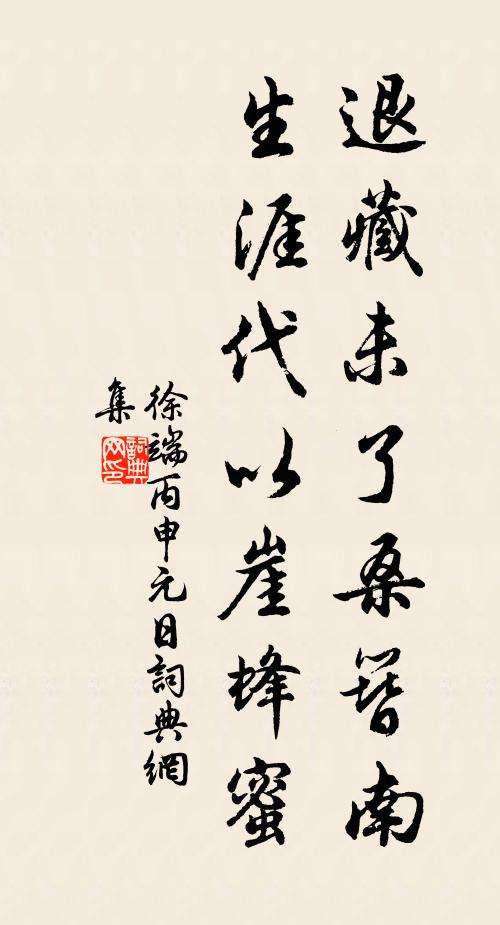 退藏未了桑簪南
生涯代以崖蜂蜜
徐端丙申元日詞典網
集
詞典
网印